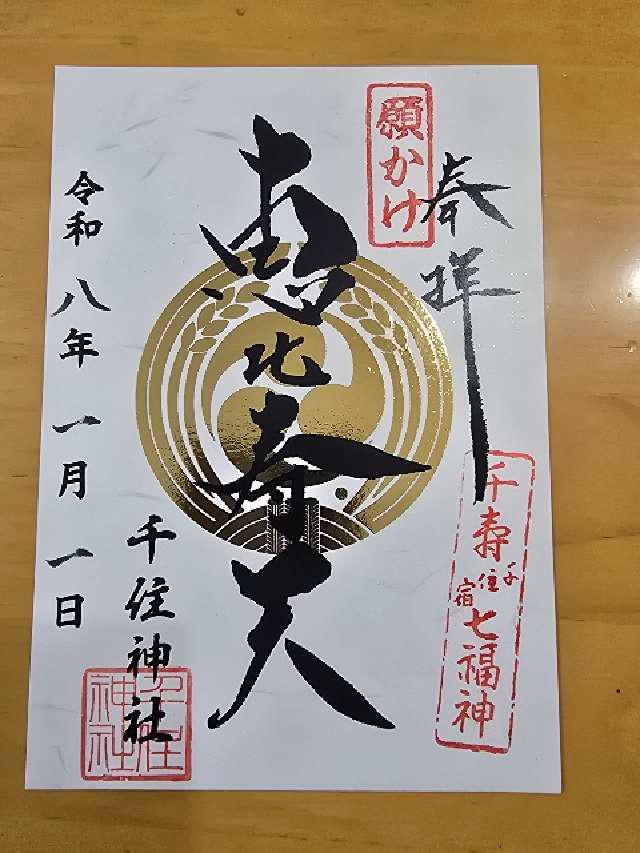 願かけ
奉拝
千寿
千住宿
七福神
恵比寿天
千住神社
令和八年一月一日
千住
神社